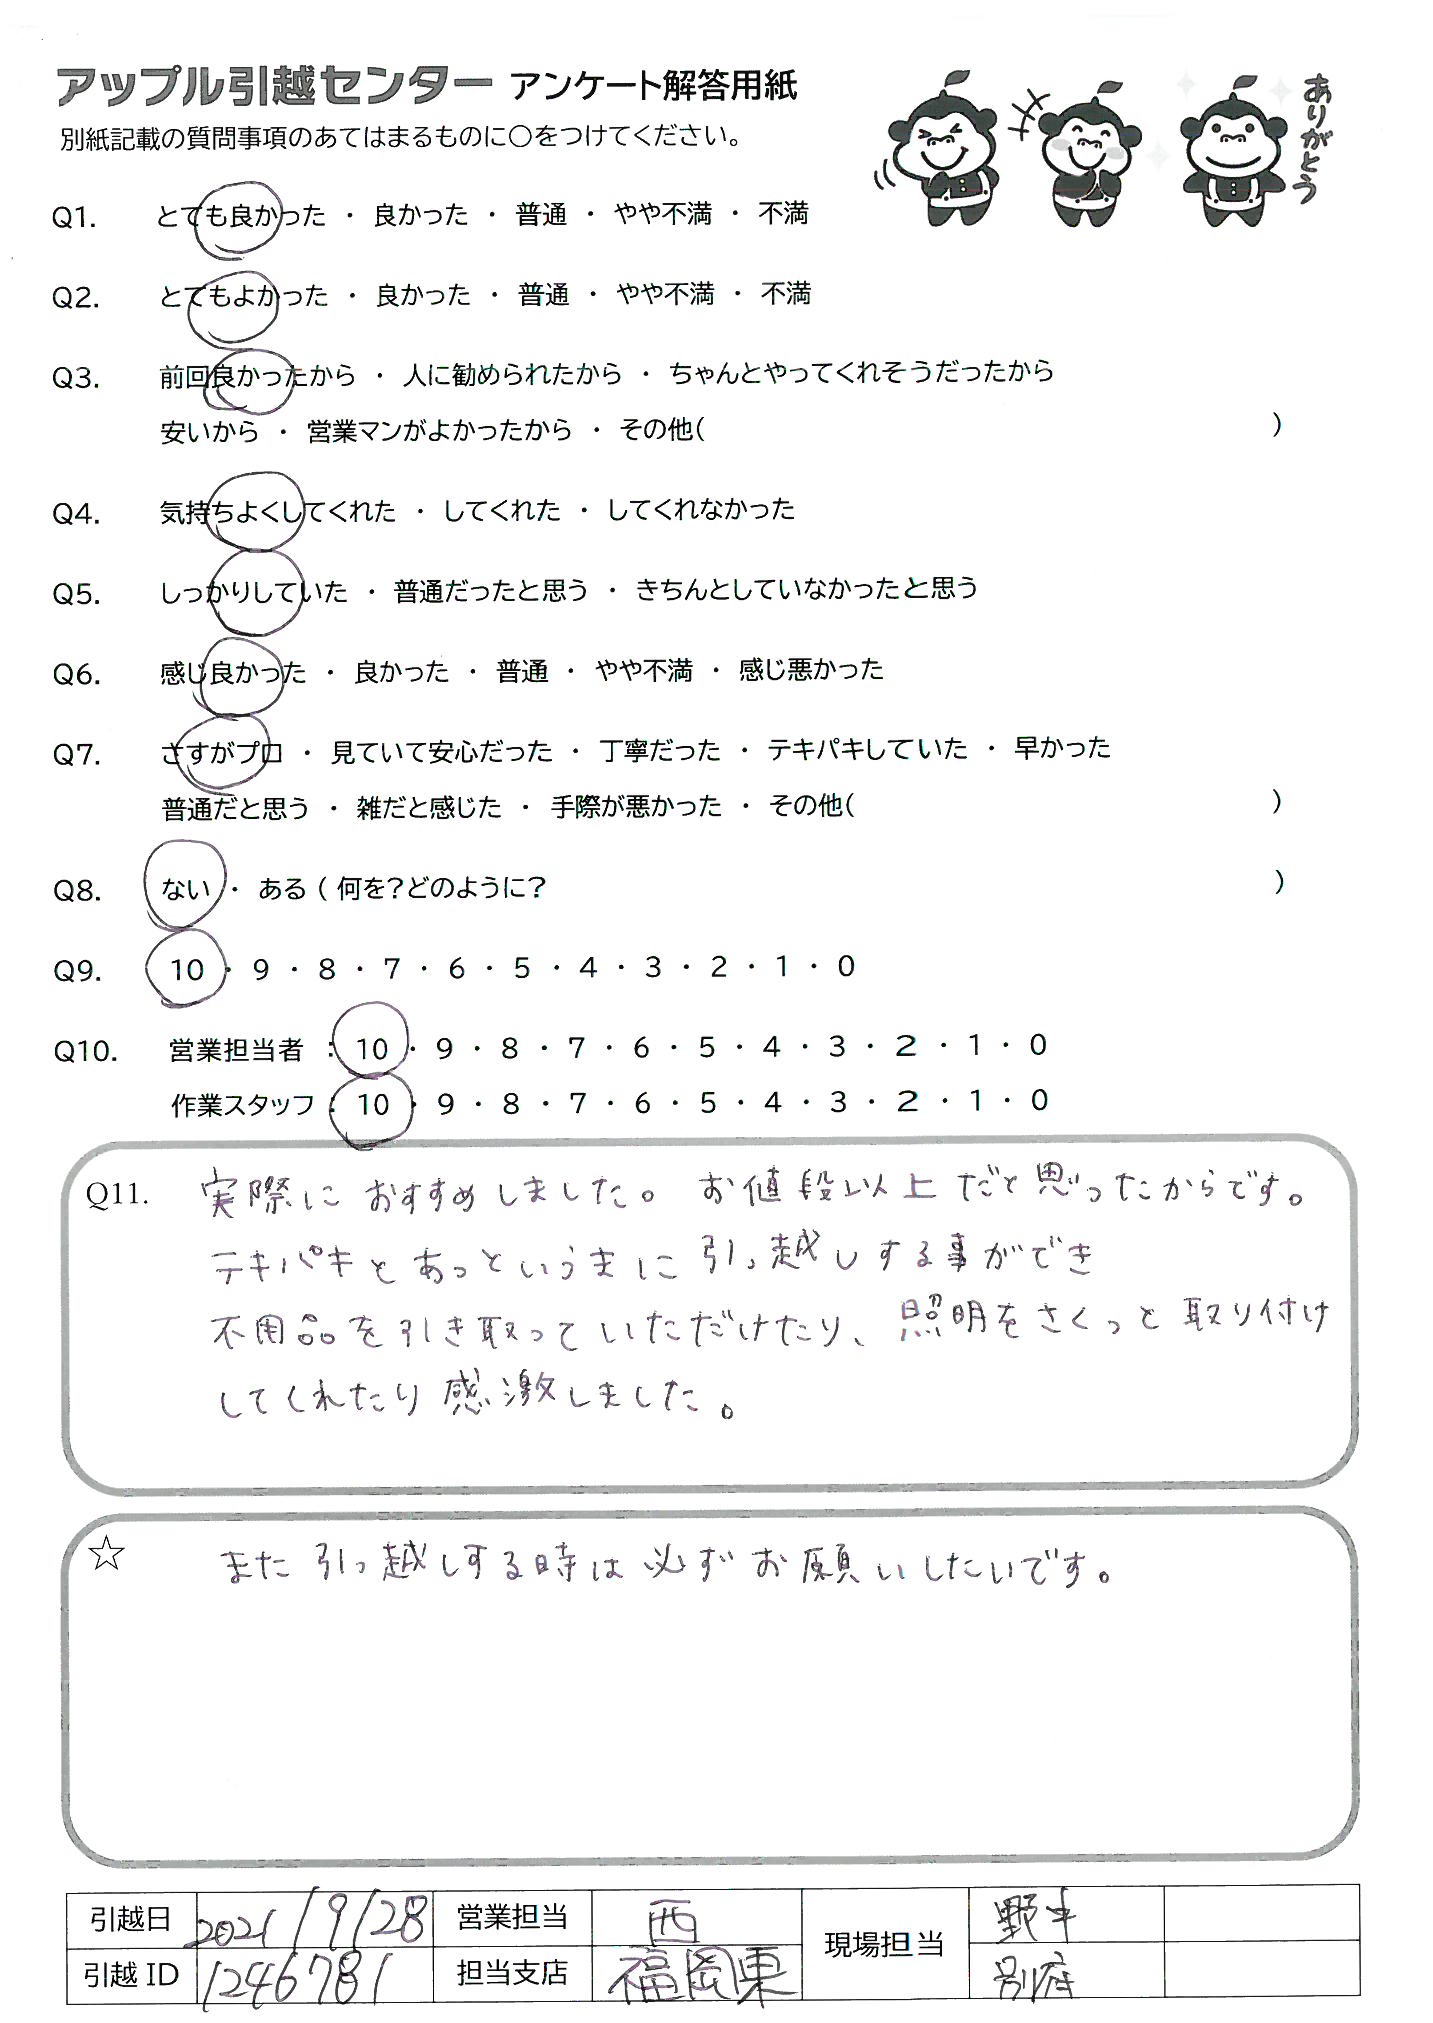 アップル引越センター アンケート解答用紙
ありがとう
別紙記載の質問事項のあてはまるものに○をつけてください。
Q1. とても良かった ・ 良かった ・ 普通 ・ やや不満 ・ 不満
Q2. とてもよかった ・ 良かった ・ 普通 ・ やや不満 ・ 不満
Q3. 前回良かったから ・ 人に勧められたから ・ ちゃんとやってくれそうだったから
安いから ・ 営業マンがよかったから ・ その他( )
Q4. 気持ちよくしてくれた ・ してくれた ・ してくれなかった
Q5. しっかりしていた ・ 普通だったと思う ・ きちんとしていなかったと思う
Q6. 感じ良かった ・ 良かった ・ 普通 ・ やや不満 ・ 感じ悪かった
Q7. さすがプロ ・ 見ていて安心だった ・ 丁寧だった ・ テキパキしていた ・ 早かった
普通だと思う ・ 雑だと感じた ・ 手際が悪かった ・ その他( )
Q8. ない ・ ある ( 何を?どのように? )
Q9. 10 ・ 9 ・ 8 ・ 7 ・ 6 ・ 5 ・ 4 ・ 3 ・ 2 ・ 1 ・ 0
Q10. 営業担当者 : 10 ・ 9 ・ 8 ・ 7 ・ 6 ・ 5 ・ 4 ・ 3 ・ 2 ・ 1 ・ 0
作業スタッフ : 10 ・ 9 ・ 8 ・ 7 ・ 6 ・ 5 ・ 4 ・ 3 ・ 2 ・ 1 ・ 0
Q11. 実際におすすめしました。お値段以上だと思ったからです。
テキパキとあっというまに引っ越しする事ができ
不用品を引き取っていただけたり、照明をさくっと取り付け
してくれたり感激しました。
☆ また引っ越しする時は必ずお願いしたいです。
引越日 2021/9/28 営業担当 西 現場担当 野中
引越ID 1246781 担当支店 福岡東 別府